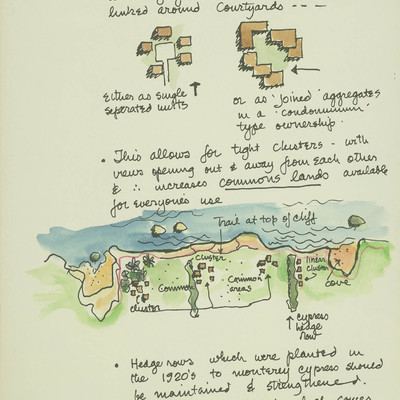 linked around courtyards ---
Either as single
separated units
or as 'joined' aggregates
in a 'condominium'
type ownership.
• This allows for tight clusters - with
views opening out & away from each other
& ∴ increases commons lands available
for everyone's use
Trail at top of cliff
cluster
Common
Common
areas
linear
cluster
cove
cluster
cypress
hedge
row
• Hedge rows which were planted in
the 1920's to monterey cypress should
be maintained & strengthened.